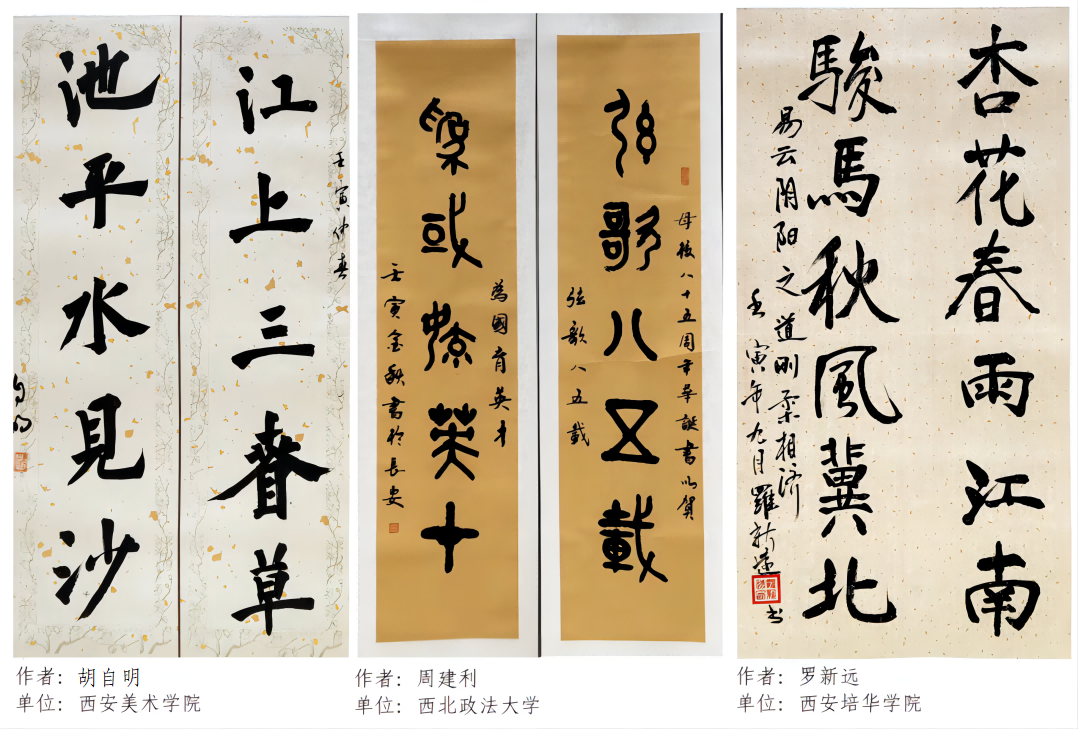 江上三春草
壬寅仲春
池平水見沙
自明
弦歌八五載
母校八十五周年華誕書以賀
弦歌八五載
為國育英才
壬寅金秋書於長安
杏花春雨江南
駿馬秋風冀北
易云阴阳之道刚柔相济
壬寅年九月羅新遠书
作者：胡自明
单位：西安美术学院
作者：周建利
单位：西北政法大学
作者：罗新远
单位：西安培华学院